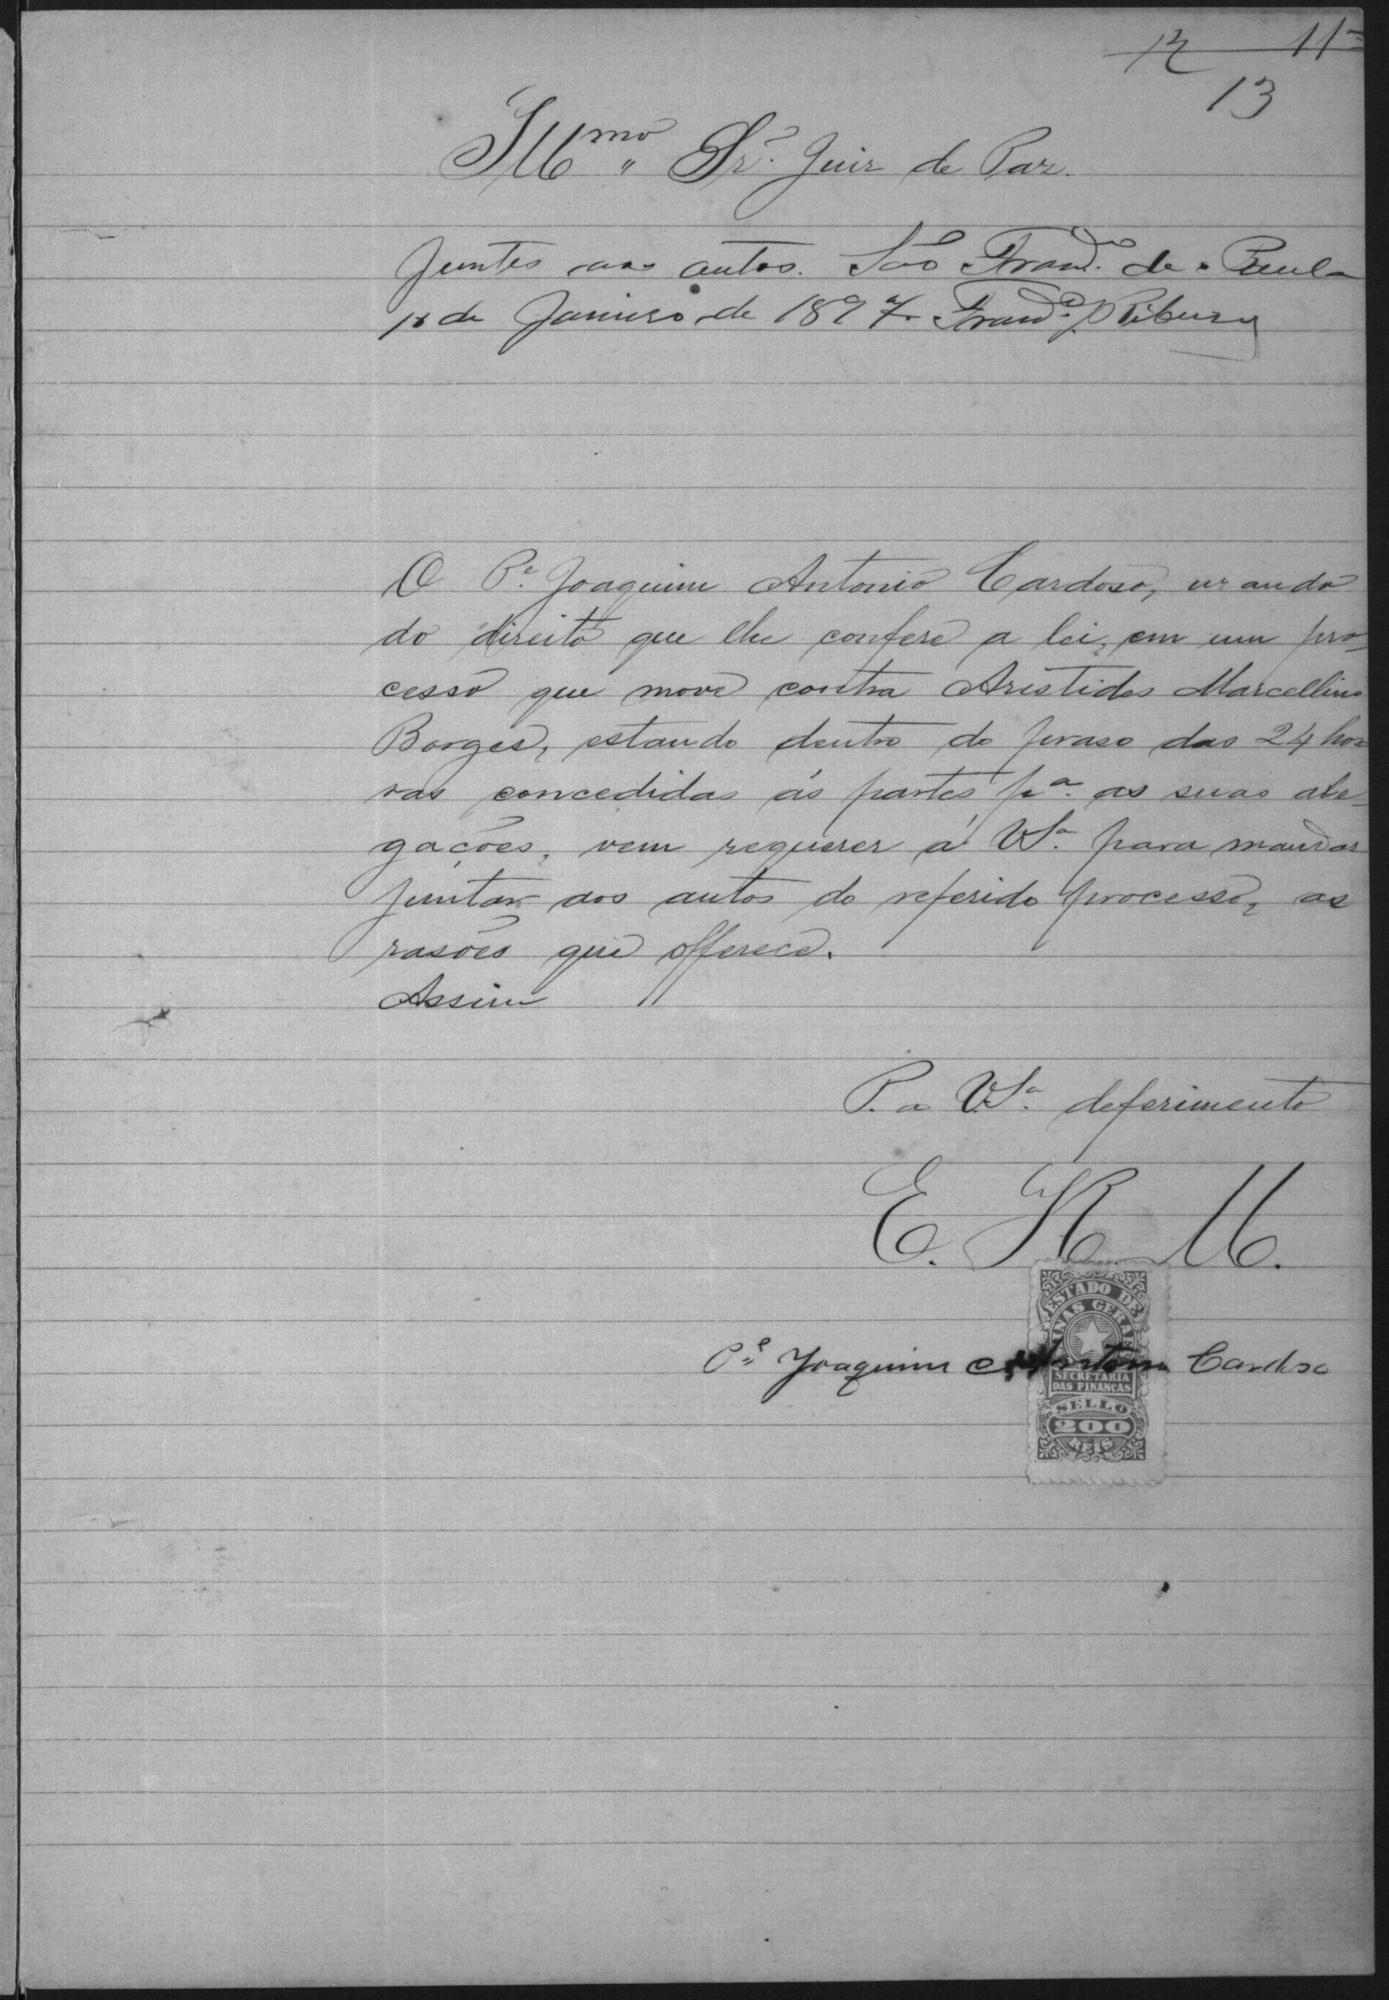 12 11
13
Illmo. Sr. Juiz de Paz.
Juntes aos autos. São Franco. de Paula
de Janeiro de 1897. Franco. Ribeiro
O Pe. Joaquim Antonio Cardoso, usando
do direito que lhe confere a lei, em um pro-
cesso que move contra Aristides Marcellino
Borges, estando dentro do praso das 24 ho-
ras concedidas ás partes pa. as suas ale-
gações, vem requerer á VSa. para mandar
juntar aos autos do referido processo, as
rasões que offerece.
Assim
P. a V.Sa. deferimento
E. R. M.
Pe. Joaquim Antonio Cardoso
ESTADO DE
MINAS GERAES
SECRETARIA
DAS FINANÇAS
SELLO
200
REIS